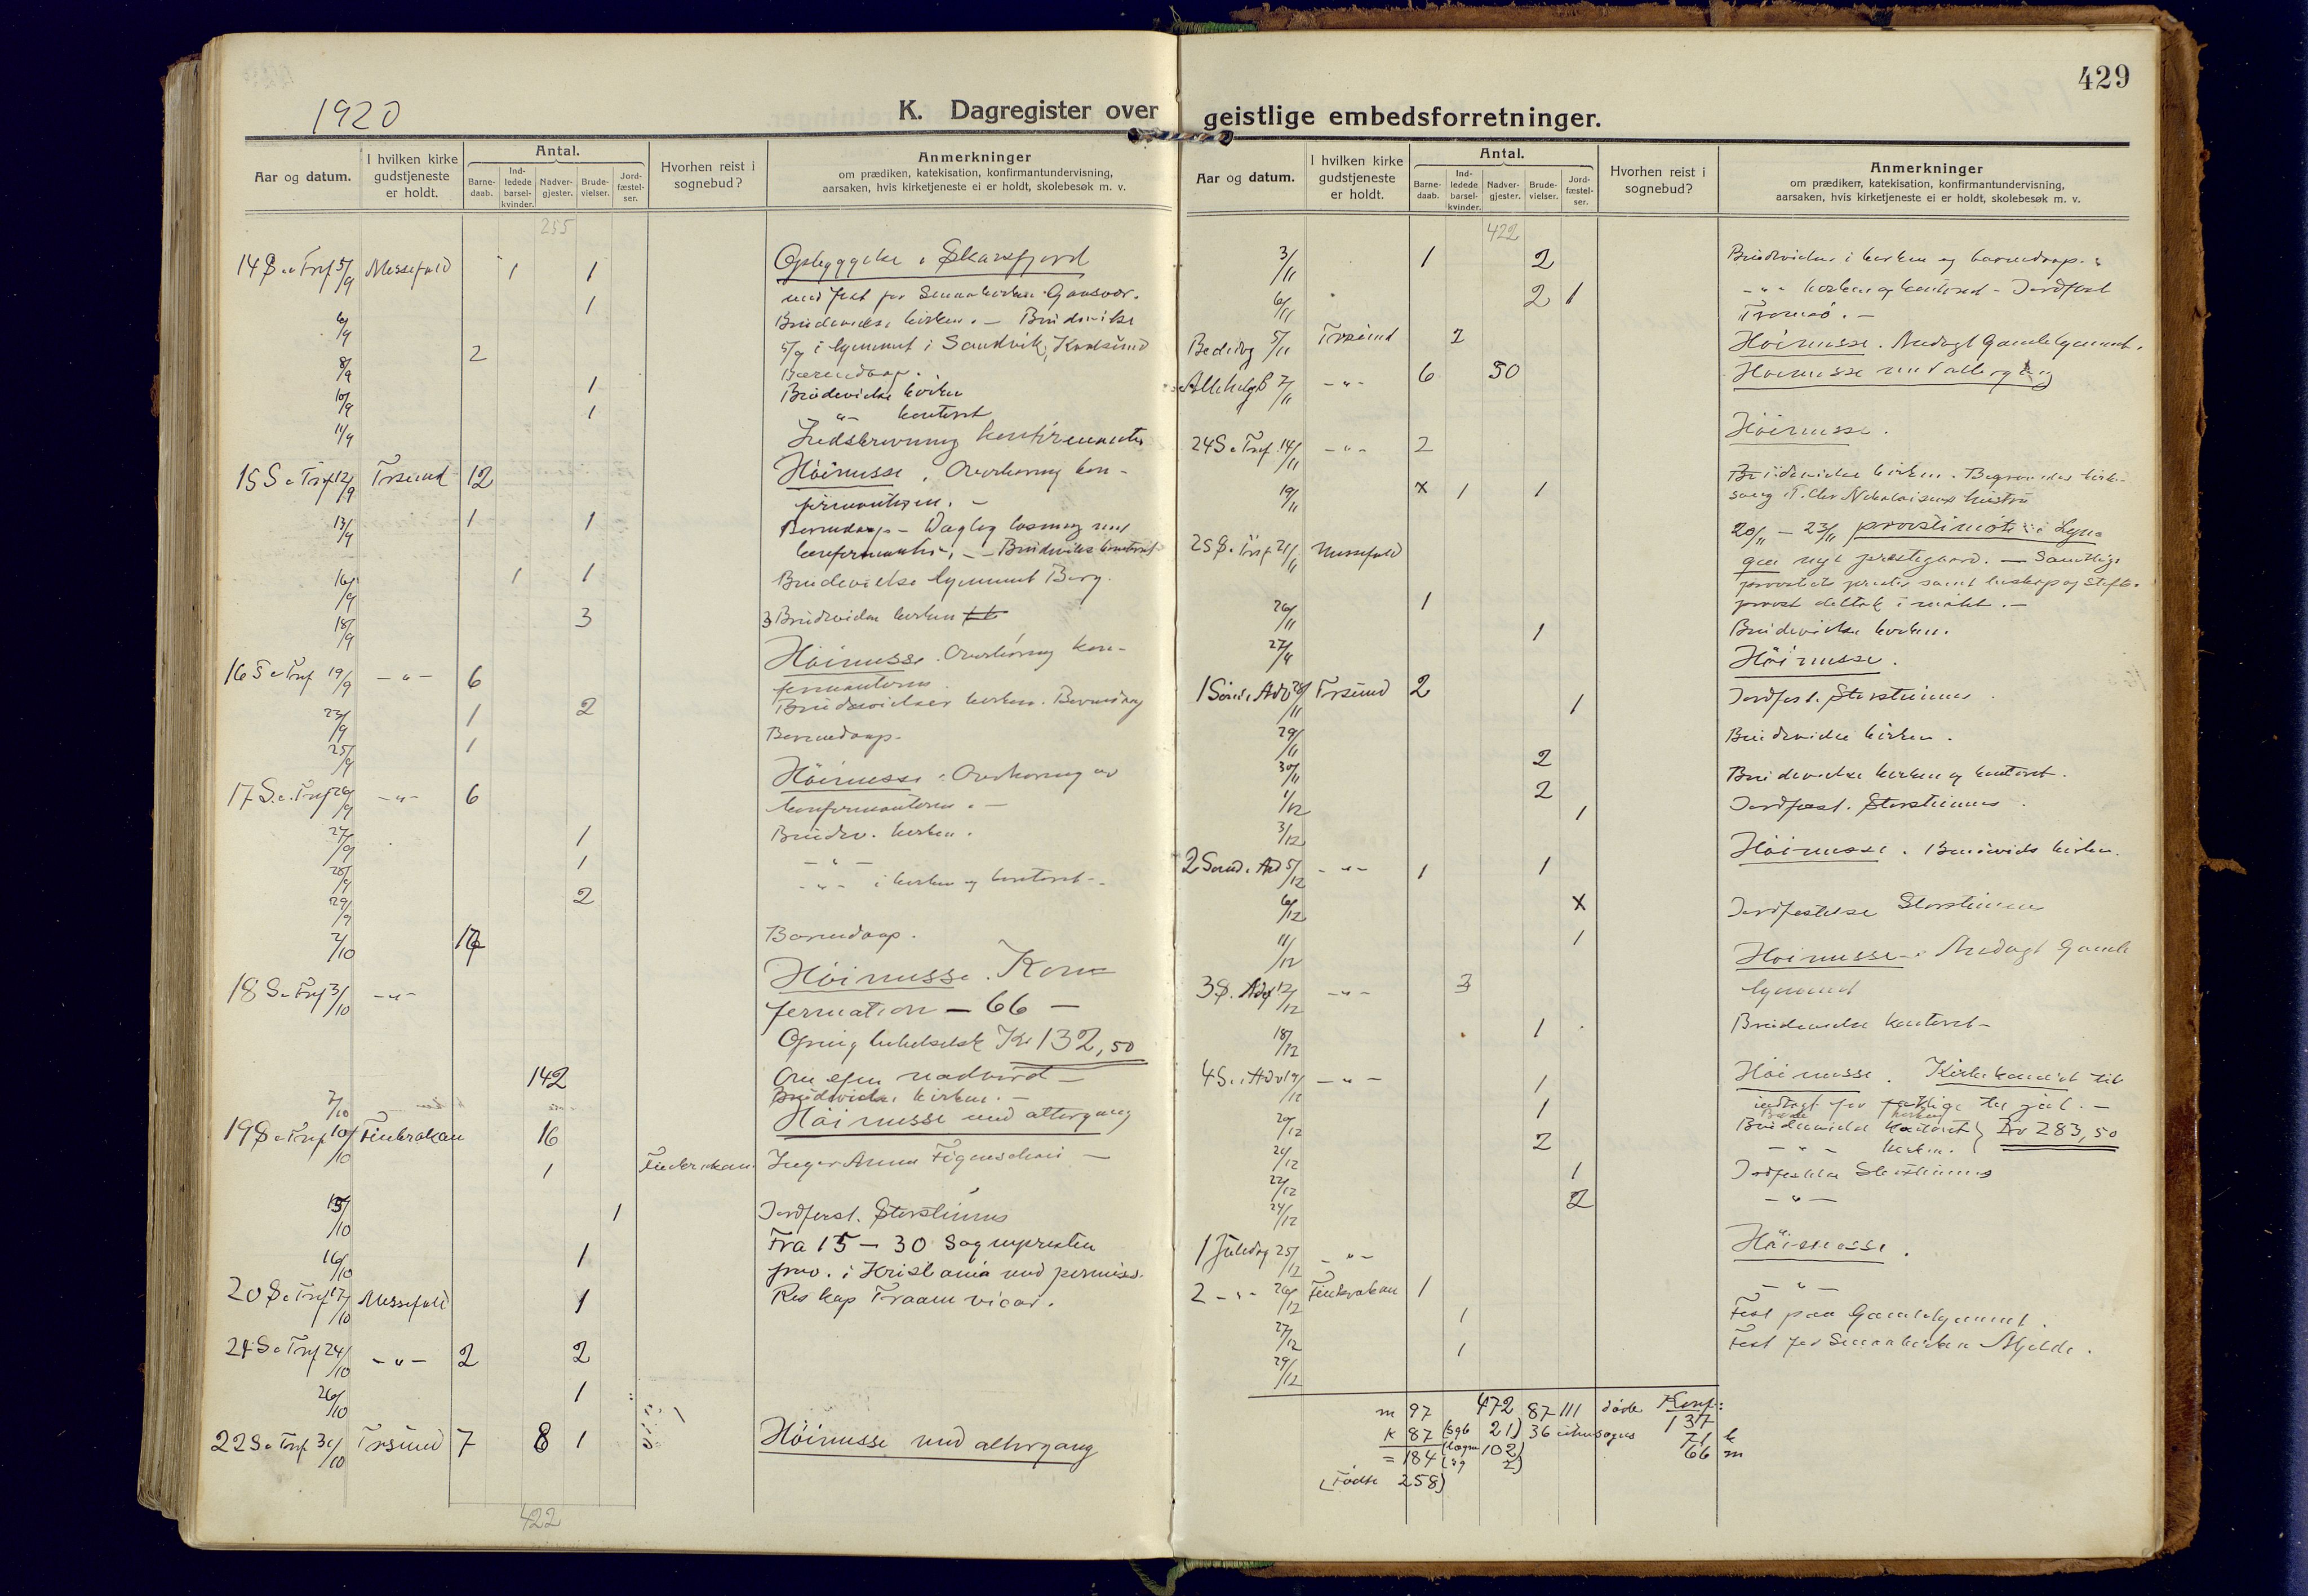 1920
K. Dagregister over
Aar og datum.
I hvilken kirke
gudstjeneste
er holdt.
Antal.
Barne-
daab.
Ind-
ledede
barsel-
kvinder.
Nadver-
gjester.
Brude-
vielser.
Jord-
fæstel-
ser.
Hvorhen reist i
sognebud?
Anmerkninger
om prædiken, katekisation, konfirmantundervisning,
aarsaken, hvis kirketjeneste ei er holdt, skolebesøk m. v.
235
14 S. e Tref 5/9 Messefald 1 1 Opbyggelse i Skarsfjord
1
6/9 Brudevielse kirken. – Brudevielse
5/9 i hjemmet i Sandvik, Kvalsund
8/9 2 Barnedaap.
10/9 1 Brudevielse kirken
11/9 1 –"– kontoret
Indskrivning konfirmanter
15 S e Tref 12/9 Trsund 12 Höimesse, Overhöring kon-
firmantern. –
13/9 1 1 Barnedaap – Daglig læsning med
konfirmanter. – Brudevielse kontoret
16/9 1 1 Brudevielse hjemmet Berg.
18/9 3 3 Brudevielser kirken
16 S e Tref 19/9 –"– 6 Höimesse. Overhöring kon-
firmanterne
23/9 1 2 Brudevielser kirken. Barnedaap
25/9 1 Barnedaap.
17 S. e. Tref 26/9 –"– 6 Höimesse. Overhöring av
konfirmanterne. –
27/9 1 Brudev. kirken.
28/9 1 –"–
29/9 2 –"– i kirken og kontoret –
2/10 Barnedaap.
18 S e Tref 3/10 –"– Höimesse. Kon-
firmation – 66 –
Kr 132,50
142 nadverd –
7/10 Brudevielse kirken. –
19 S e Tref 10/10 Finkrokan 16 Höimesse med altergang
1 Finkrokan Inger Anna Figenschau –
15/10 1 Jordfæst. Storsteinnes
16/10 1 Fra 15 – 30 Sognepresten
frav. i Kristiania med permiss.
20 S e Tref 17/10 Messefald 1 Res kap Traam vicar.
21 S e Tref 24/10 –"– 2 2
26/10 1
22 S e Tref 31/10 Trsund 7 8 1 Höimesse med altergang
422
429
geistlige embedsforretninger.
Aar og datum.
I hvilken kirke
gudstjeneste
er holdt.
Antal.
Barne-
daab.
Ind-
ledede
barsel-
kvinder.
Nadver-
gjester.
Brude-
vielser.
Jord-
fæstel-
ser.
Hvorhen reist i
sognebud?
Anmerkninger
om prædiken, katekisation, konfirmantundervisning,
aarsaken, hvis kirketjeneste ei er holdt, skolebesøk m. v.
422
3/11 1 2 Brudevielser i kirken og barnedaap.
6/11 2 1 –"– kirken og kontoret – Jordfæst
Tromsö. –
Bededag 5/11 Trsund 2 Höimesse. Andagt Gamlehjemmet.
Allehelg S 7/11 –"– 6 30 Höimesse med altergang
24 S e Tref. 14/11 –"– 2 Höimesse.
19/11 x 1 1 Brudevielse kirken.
20/11 – 23/11 provstimöte i Lyn-
25 S. e Tref 21/11 Messefald gen nye prestegaard. – Samtlige
provstiets prester samt biskop og stifts-
26/11 1 provst deltok i mötet. –
27/11 1 Brudevielse kirken.
Höimesse.
1 Sönd. i Adv 28/11 Trsund 2
29/11 1 Jordfæst. Storsteinnes.
30/11 2 Brudevielse kirken.
1/12 2 Brudevielse kirken og kontoret.
3/12 1 Jordfæst. Storsteinnes.
2 Sönd. i Ad 5/12 –"– 1 1 Höimesse. Brudevielse kirken.
6/12 x Jordfæstelse Storsteinnes
11/12 1
3 S. Adv 12/12 –"– 3 Höimesse – Andagt Gamle
hjemmet
18/12 1 Brudevielse kontoret –
4 S. i Adv 19/12 –"– 1 Höimesse. Kirkekoncert til
indtægt for fattige til jul. –
20/12 1 Brudevielse kontoret } Kr 283,50
21/12 2 –"– kirken.
22/12 1 Jordfæstelse Storsteinnes
24/12 2 –"–
1 Juledag 25/12 –"– Höimesse.
2 –"– 26/12 Finkrokan 1 –"–
27/12 1 Fest paa Gamlehjemmet.
29/12 1 Fest for Sömandskirken Mjelde.
m 97 472 87 111 döde Konf.:
137
K 87 (sgb 21) 36 71 k
= 184 102) 66 m
2)
(Födte 258)